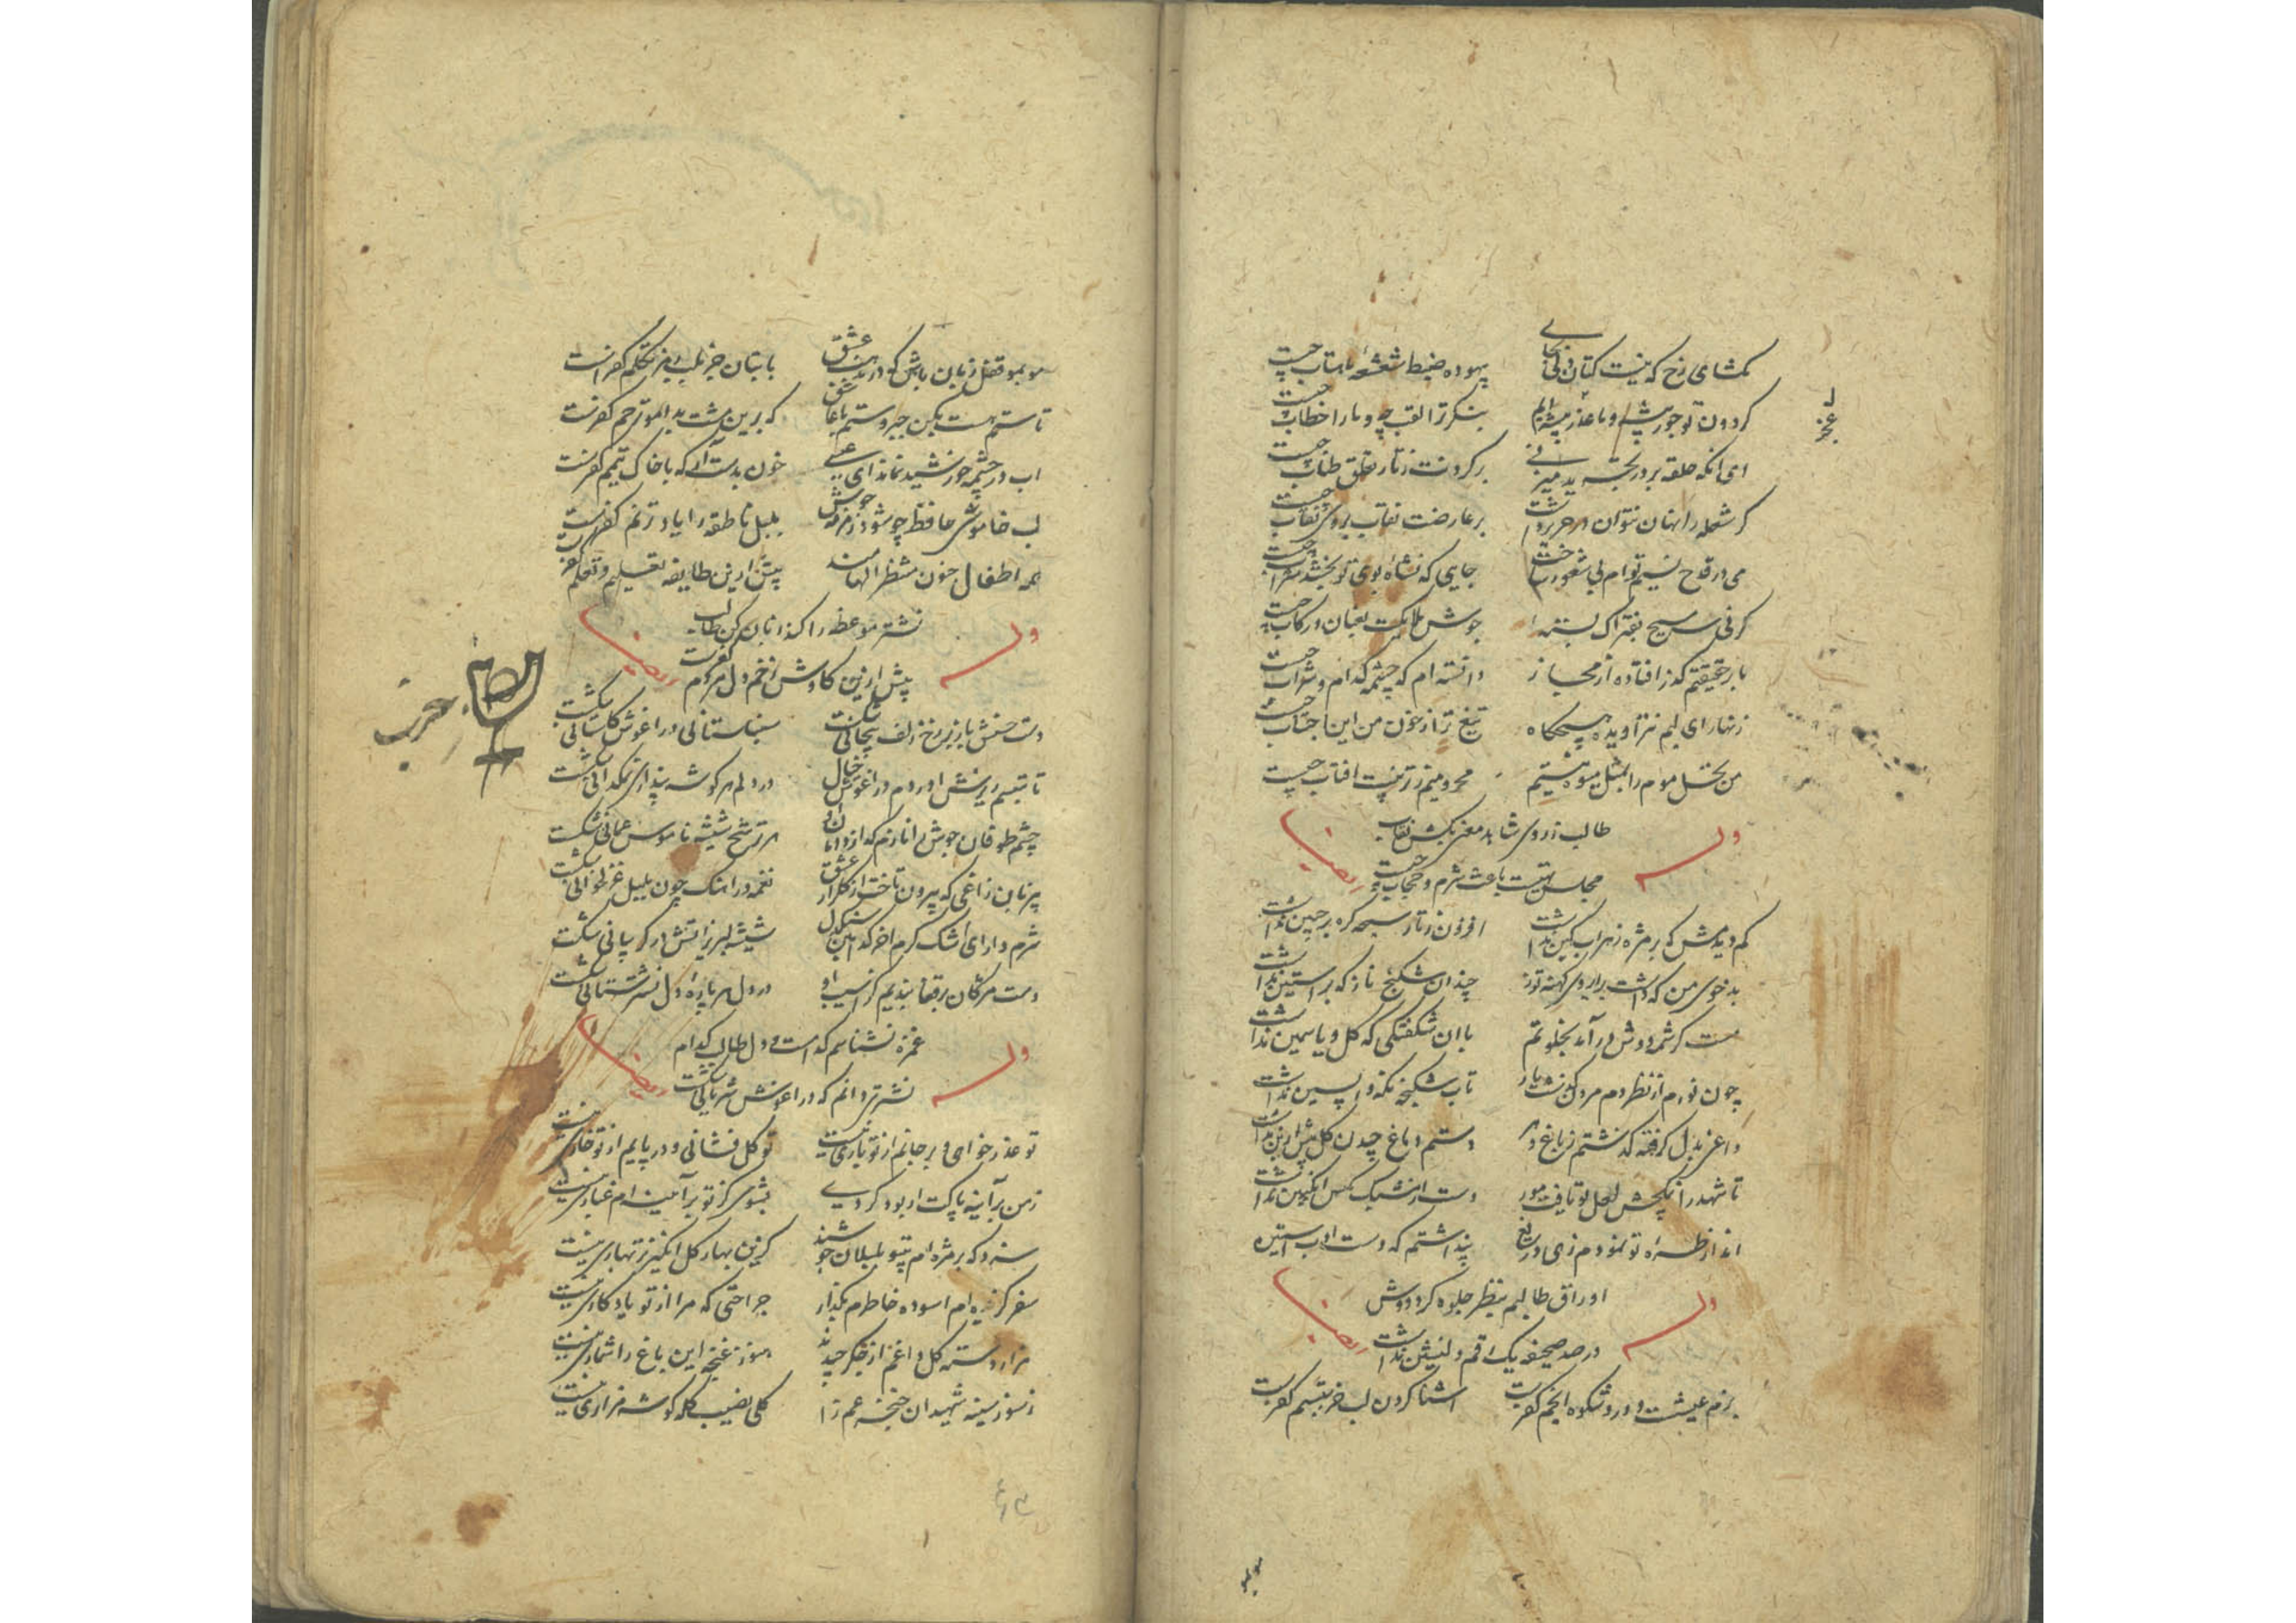 بکشای رخ که نیست کتان در بهای بیهوده ضبط شعشعه ماهتاب چیست
کردون تو جور پیشه و ما عذر پیشه ایم بنکر ترا لقب چه و ما را خطاب چیست
ای انکه حلقه بر در تجرید میزنی بر کردنت ز تار تعلق طناب چیست
کر شعله را نهان نتوان در حریر داشت بر عارضت نقاب بروی نقاب چیست
می در قدح نسیم توام بی شعور ساخت جایی که نشاه بوی تو بخشد شراب چیست
کر نی مسیح بفتراک بسته جوش ملائکت بعنان و رکاب چیست
بار حقیقتم کذر افتاده از مجاز دانسته ام که چشمه کدام و سراب چیست
زنهار ای لبم نتراویده هیچکاه تیغ ترا ز خون من این اجتناب چیست
من نخل موم را بمثل میوه نیستم محرومیم ز تربیت افتاب چیست
طالب ز روی شاهد معنی بکش نقاب
مجلس تهیست باعث شرم و حجاب چیست
وله ایضا
کم دیدمش که بر مژه زهراب کین نداشت افزون ز تار سبحه کره بر جبین نداشت
بدخوی من که داشت بر ابروی کهنه توز چندان شکنج ناز که بر استین نداشت
مست کرشمه دوش در آمد بخلوتم با ان شکفتکی که کل و یاسمین نداشت
چون نورم از نظر دم مردن نهفت یار تاب شکنجه نکه واپسین نداشت
داغم بدل کرفته کذشتم ز باغ دهر دستم دماغ چیدن کل بیش ازین نداشت
تا شهد را بچش لعل تو یافت مور دست از مکس انکبین نداشت
انداز طره تو نمودم زهی دریغ پنداشتم که دست ادب استین نداشت
اوراق طالبم بنظر جلوه کرد دوش
در صد صحیفه یک رقم دلنشین نداشت
وله ایضا
بزم عیشست و در او شکوه انجم کفرست اشنا کردن لب جز بتبسم کفرست
مو بمو قفل زبان باش که در مذهب عشق با بتان جز بلب رمز تکلم کفرست
تا ستم هست مکن جبر و ستم با عاشق که برین مشت بد اموز ترحم کفرست
اب در چشمه خورشید نماند ای عیسی خون بدست آر که با خاک تیمم کفرست
لب خاموشی حافظ چو شود زمزمه جوش بلبل ناطقه را یاد ترنم کفرست
همه اطفال جنون منتظر الهامند پیش ازین طایفه تعلیم و تعلم کفرست
نشتر موعظه را کند زبان کن طالب
بیش ازین کاوش زخم دل مردم کفرست
وله ایضا
دست حسنش باز بر رخ زلف پیچانی شکست سنبلستانی در اغوش کلستانی شکست
تا تبسم ریزش اوردم در اغوش خیال در دلم هر کوشه پنداری نمکدانی شکست
چشم طوفان جوش را نازم که از دامان او هر ترشح شیشه ناموس عمانی شکست
بر زبان زاغی که بیرون تاخت از کلزار عشق نغمه در اهنک چون بلبل غزلخوانی شکست
شرم دار ای اشک کرم اخر کدامین سنکدل شیشه لبریز آتش در کریبانی شکست
دست مژکان بر قفا بندیم کز اسیب او در دل هر پاره دل نشترستانی شکست
غمزه نشناسم کدامست و دل طالب کدام
نشتری دانم که در اغوش شریانی شکست
وله ایضا
تو عذر خواهی و بر جانم از تو باری نیست تو کل فشانی و در پایم از تو خاری نیست
ز من بر آینه پاکت ار بود کردی بشوی کز تو بر آیینه ام غباری نیست
سزد که بر مژه ام بتو بلبلان جوشند کزین بهار کل انکیزتر بهاری نیست
سفر کزیده ام اسوده خاطرم مکذار جراحتی که مرا از تو یادکاری نیست
هزار دسته کل داغم از جکر چیدند هنوز غنچه این باغ را شماری نیست
ز سوز سینه شهیدان خنجر غم را کلی نصیب کله کوشه مزاری نیست